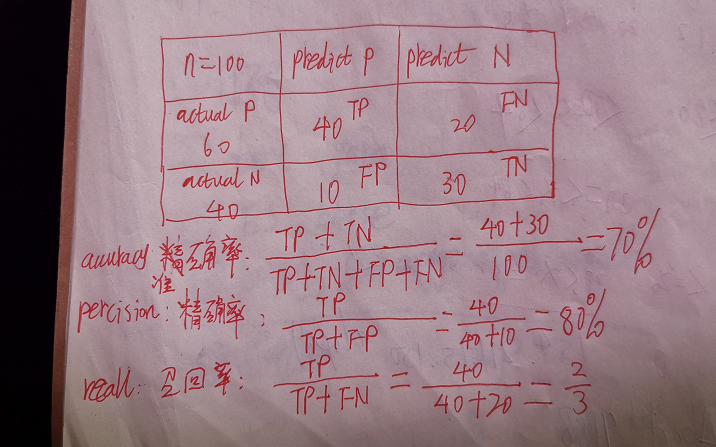 n=100 predict P predict N
actual P 60 40 TP 20 FN
actual N 40 10 FP 30 TN
accuracy 准确率: TP+TN / TP+TN+FP+FN = 40+30 / 100 = 70%
percision: 精确率: TP / TP+FP = 40 / 40+10 = 80%
recall: 召回率: TP / TP+FN = 40 / 40+20 = 2/3